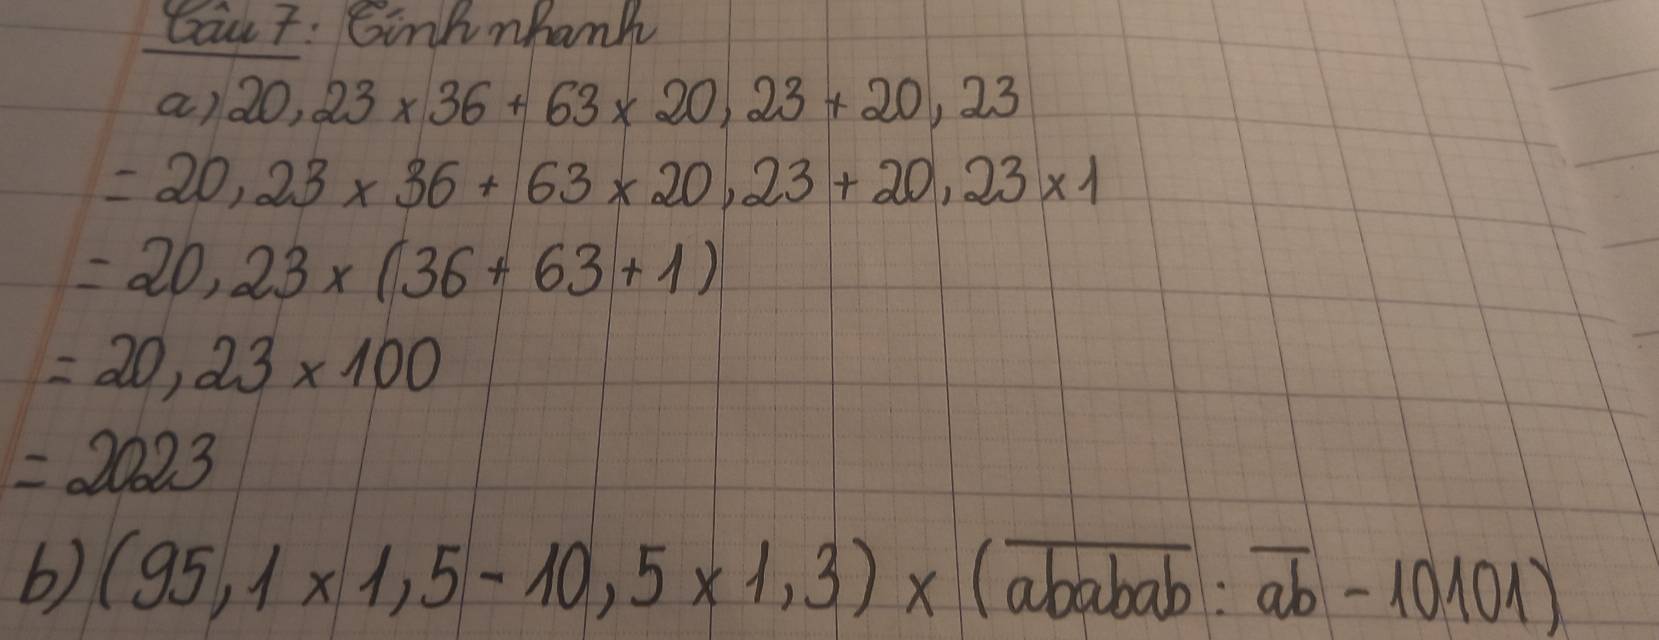 Câu 7: Tính nhanh
a) 20,23 × 36 + 63 × 20,23 + 20,23
= 20,23 × 36 + 63 × 20,23 + 20,23 × 1
= 20,23 × (36 + 63 + 1)
= 20,23 × 100
= 2023
b) (95,1 × 1,5 - 10,5 × 1,3) × (\overline{ababab} : \overline{ab} - 10101)